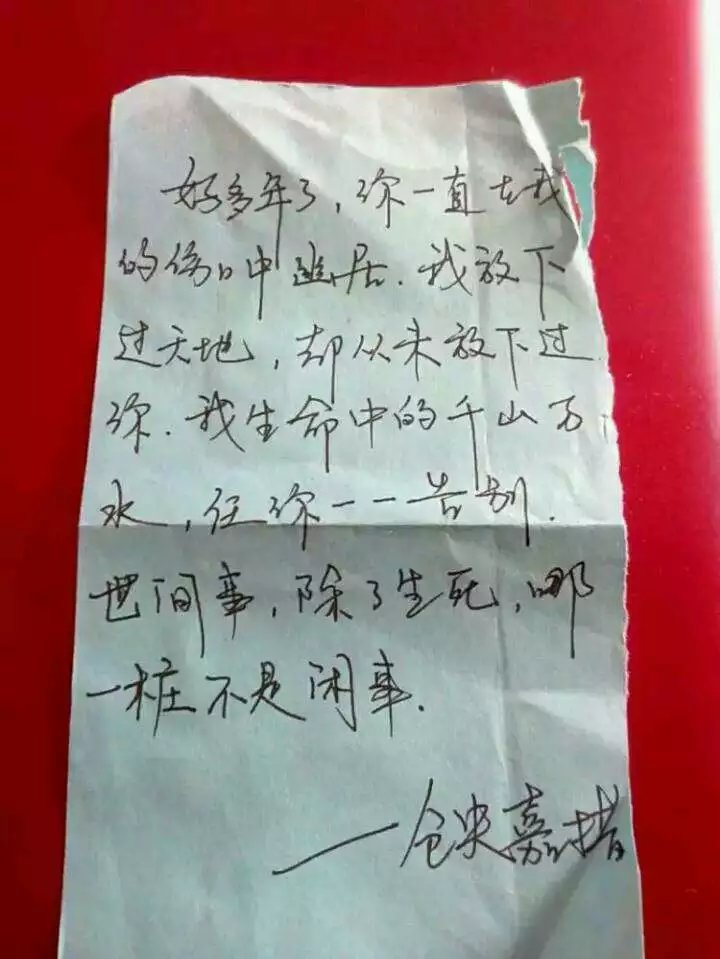 好多年了，你一直在我
的伤口中幽居．我放下
过天地，却从未放下过
你．我生命中的千山万
水，任你一一告别．
世间事，除了生死，哪
一桩不是闲事．
——仓央嘉措